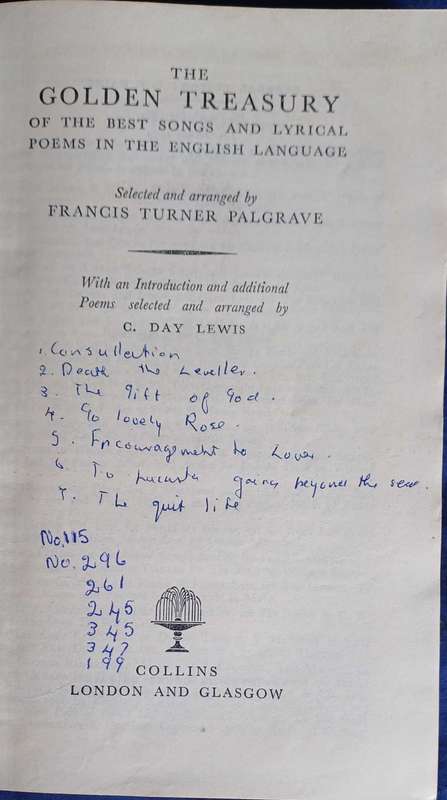 THE
GOLDEN TREASURY
OF THE BEST SONGS AND LYRICAL
POEMS IN THE ENGLISH LANGUAGE
Selected and arranged by
FRANCIS TURNER PALGRAVE
With an Introduction and additional
Poems selected and arranged by
C. DAY LEWIS
1. Consullation
2. Death the Leveller.
3. The gift of God.
4. Go lovely Rose.
5. Encouragement to Lover.
6 To Lucasta going beyond the seas.
7. The quit life
No. 115
No. 296
261
245
345
347
199
COLLINS
LONDON AND GLASGOW